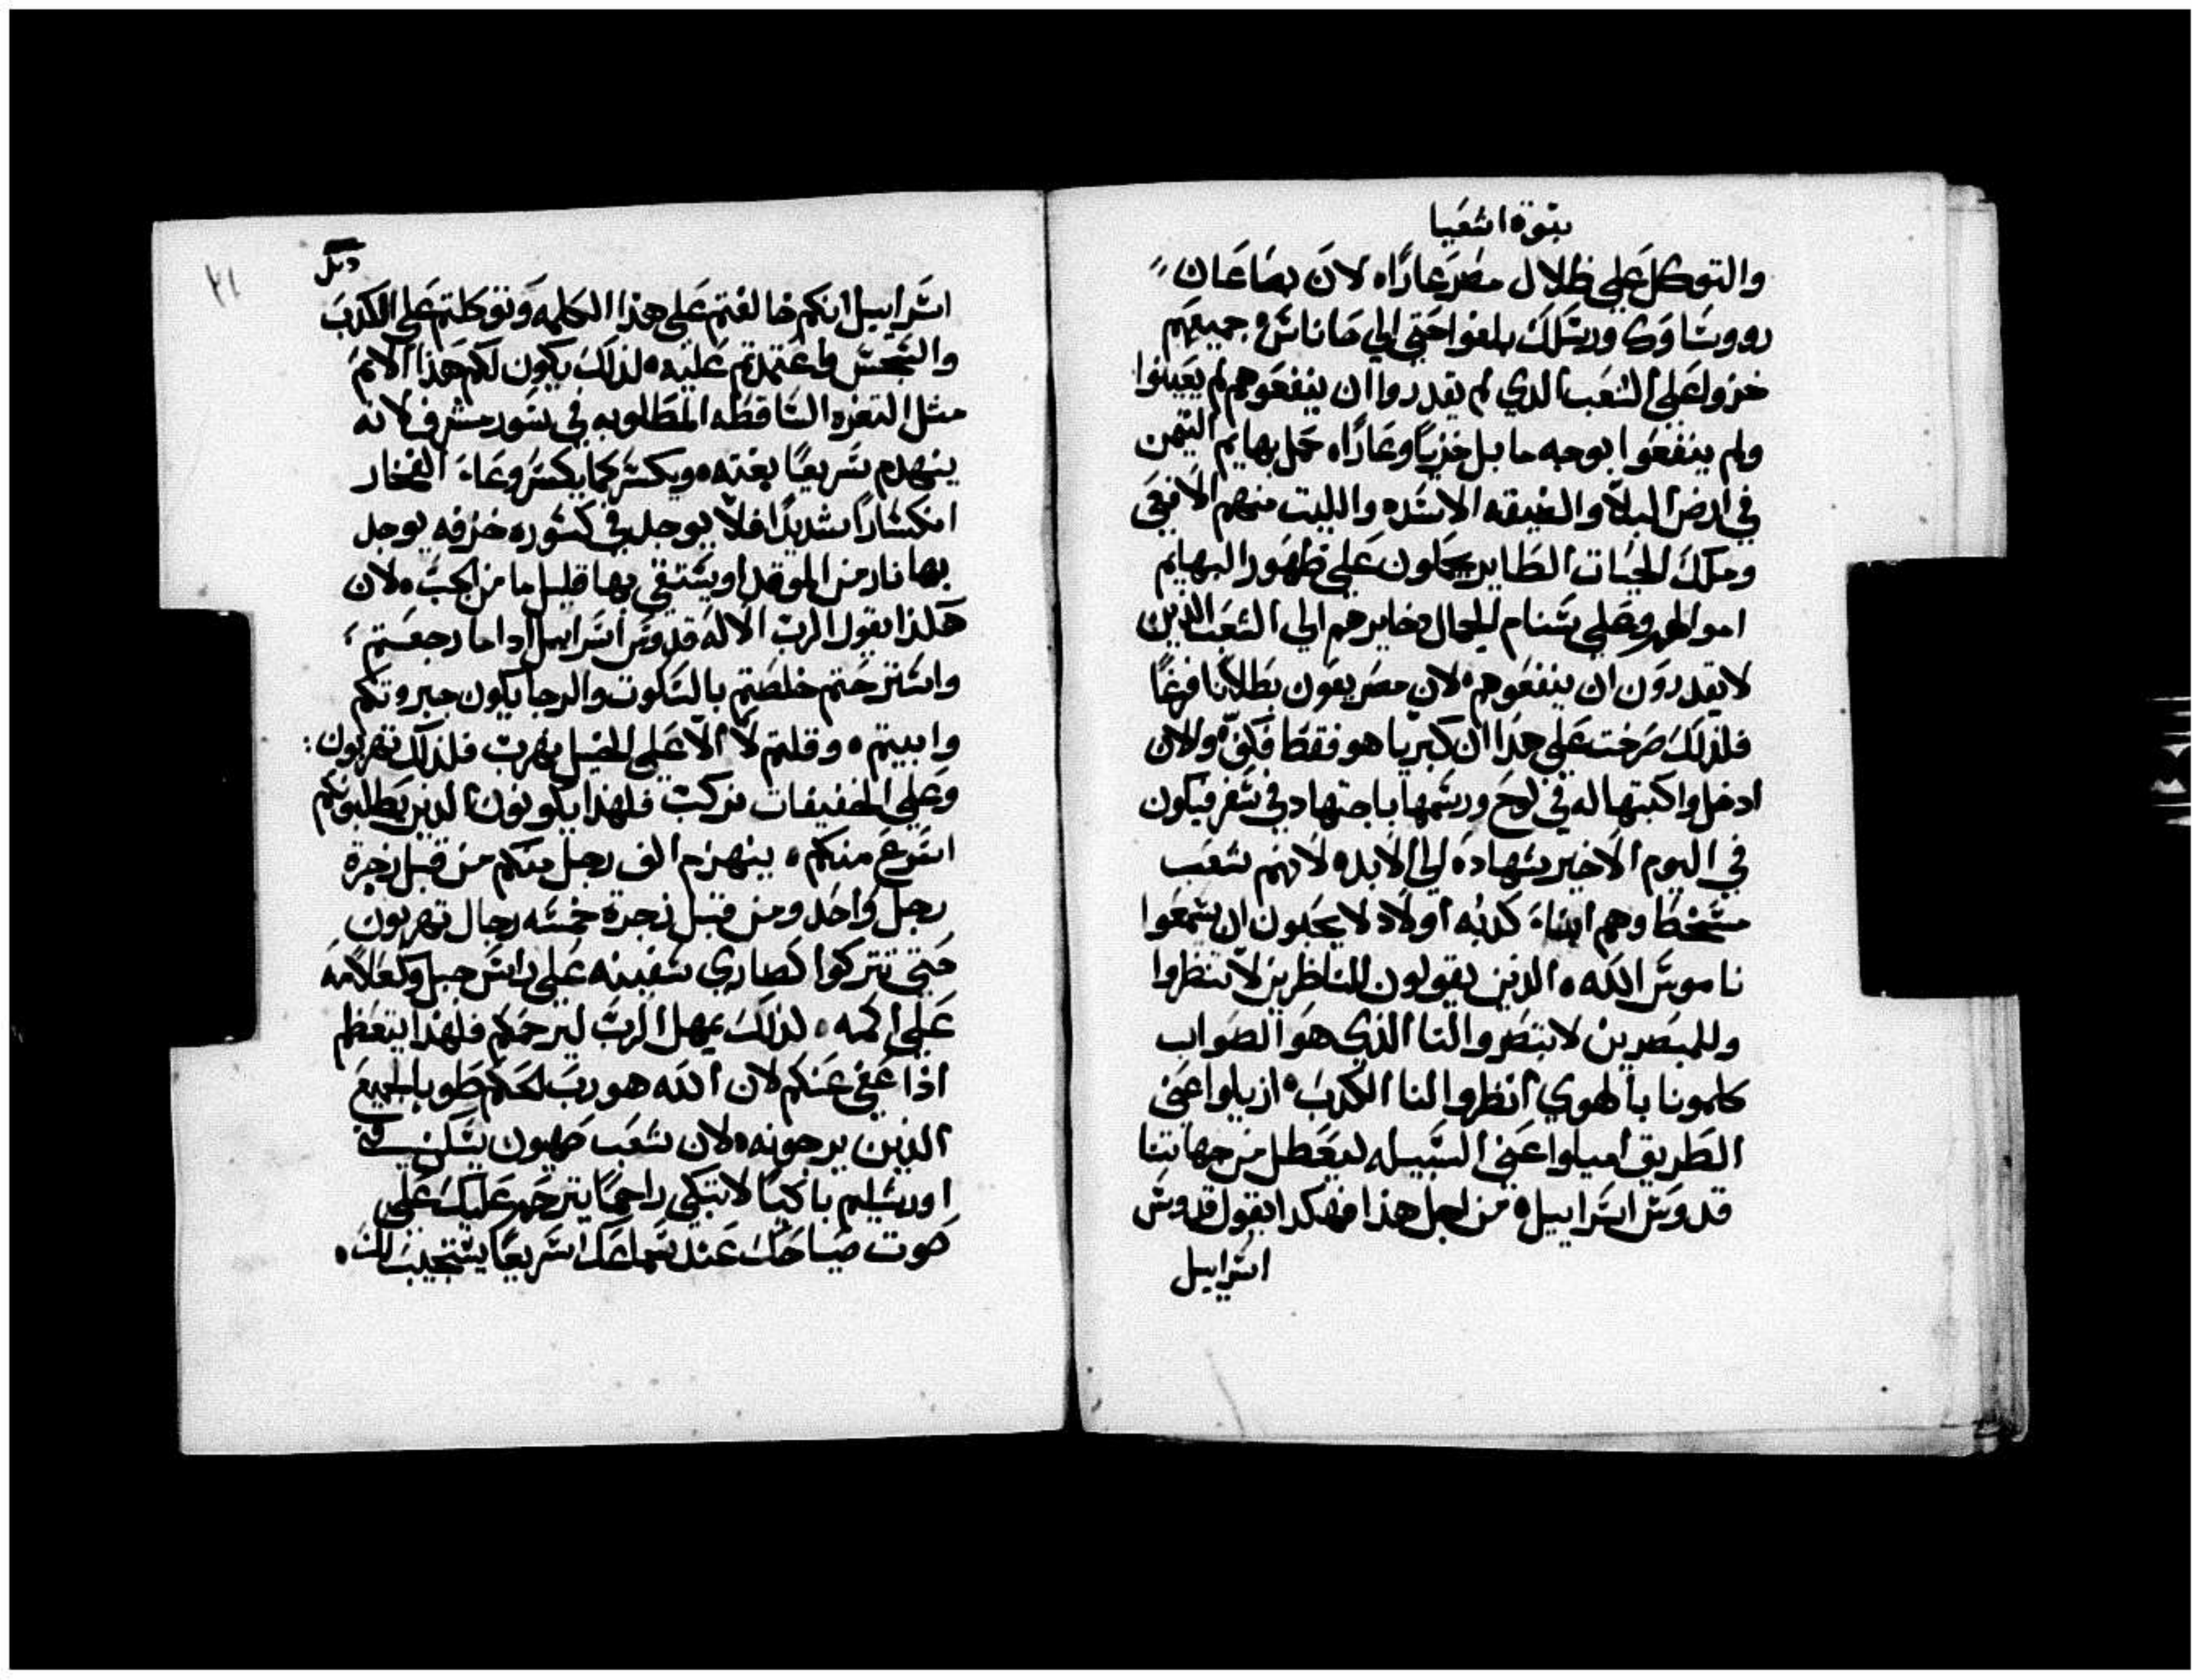 نبوة اشعيا
والتوكل علي ظلال مصر عارًا ه لان بصاعان
رووساوك ورسلك بلغوا حتي الي حاناس ه جميعهم
خزوا علي الشعب الدي لم يقدروا ان ينفعوهم لم يعينوا
ولم ينفعوا بوجه ما بل خزيًا وعارًا ه حمل بهايم التيمن
في ارض البلا والضيقه الاسده والليث منهم الافعي
وملك الحيات الطاير يحملون علي ظهور البهايم
اموالهم وعلي سنام الجمال دخايرهم الي الشعب الذين
لا يقدرون ان ينفعوهم ه لان مصر يعون بطلانا فرغًا
فلذلك صرخت علي هذا ان كبريا هو فقط فكف ه والان
ادخل واكتبها له في لوح ورسمها باجتهاد في سفر فيكون
في اليوم الاخير شهاده الي الابد ه لانهم شعب
مسخط وهم ابناء كدبه اولاد لا يحبون ان يسمعوا
ناموس الله ه الذين يقولون للناظرين لا تنظروا
وللمبصرين لا تبصروا لنا الذي هو الصواب
كلمونا بالهوي انظروا لنا الكدب ه ازيلوا عني
الطريق اميلوا عني السبيله ليعطل من جهاتنا
قدوس اسراييل ه من اجل هذا فهكدا يقول قدوس
اسراييل
٢١
اسراييل انكم خالفتم علي هذا الكلمه وتوكلتم علي الكدب
والتجسس واعتمدتم عليه ه لذلك يكون لكم هذا الاثم
مثل الثغره الساقطه المطلوبه في سور مشرف لانه
ينهدم سريعًا بغته ه ويكسر كما يكسر وعاء الفخار
انكسارًا شديدًا فلا يوجد في كسوره خزفه يوجد
بها نار من الموقد او يستقي بها قليل ما من الجب ه لان
هكذا يقول الرب الاله قدوس اسراييل ادا ما رجعتم
واسترحتم خلصتم بالسكوت والرجا يكون جبروتكم
وابيتم ه وقلتم لا الا علي الخيل نهرب فلذلك تهربون
وعلي الخفيفات نركب فلهذا يكونون الذين يطلبونكم
اسرع منكم ه ينهزم الف رجل منكم من قبل زجرة
رجل واحد ومن قبل زجرة خمسه رجال تهربون
حتي تتركوا كصاري سفينه علي راس جبل وكعلامه
علي اكمه ه لذلك يمهل الرب ليرحمكم فلهذا يتعظم
اذا عفي عنكم لان الله هو رب لحكم طوبا لجميع
الذين يرجونه ه لان شعب صهيون يسكن في
اورشليم باكيًا لا تبكي راحمًا يترحم عليك علي
صوت صياحك عند سماعك سريعًا يستجيب لك ه